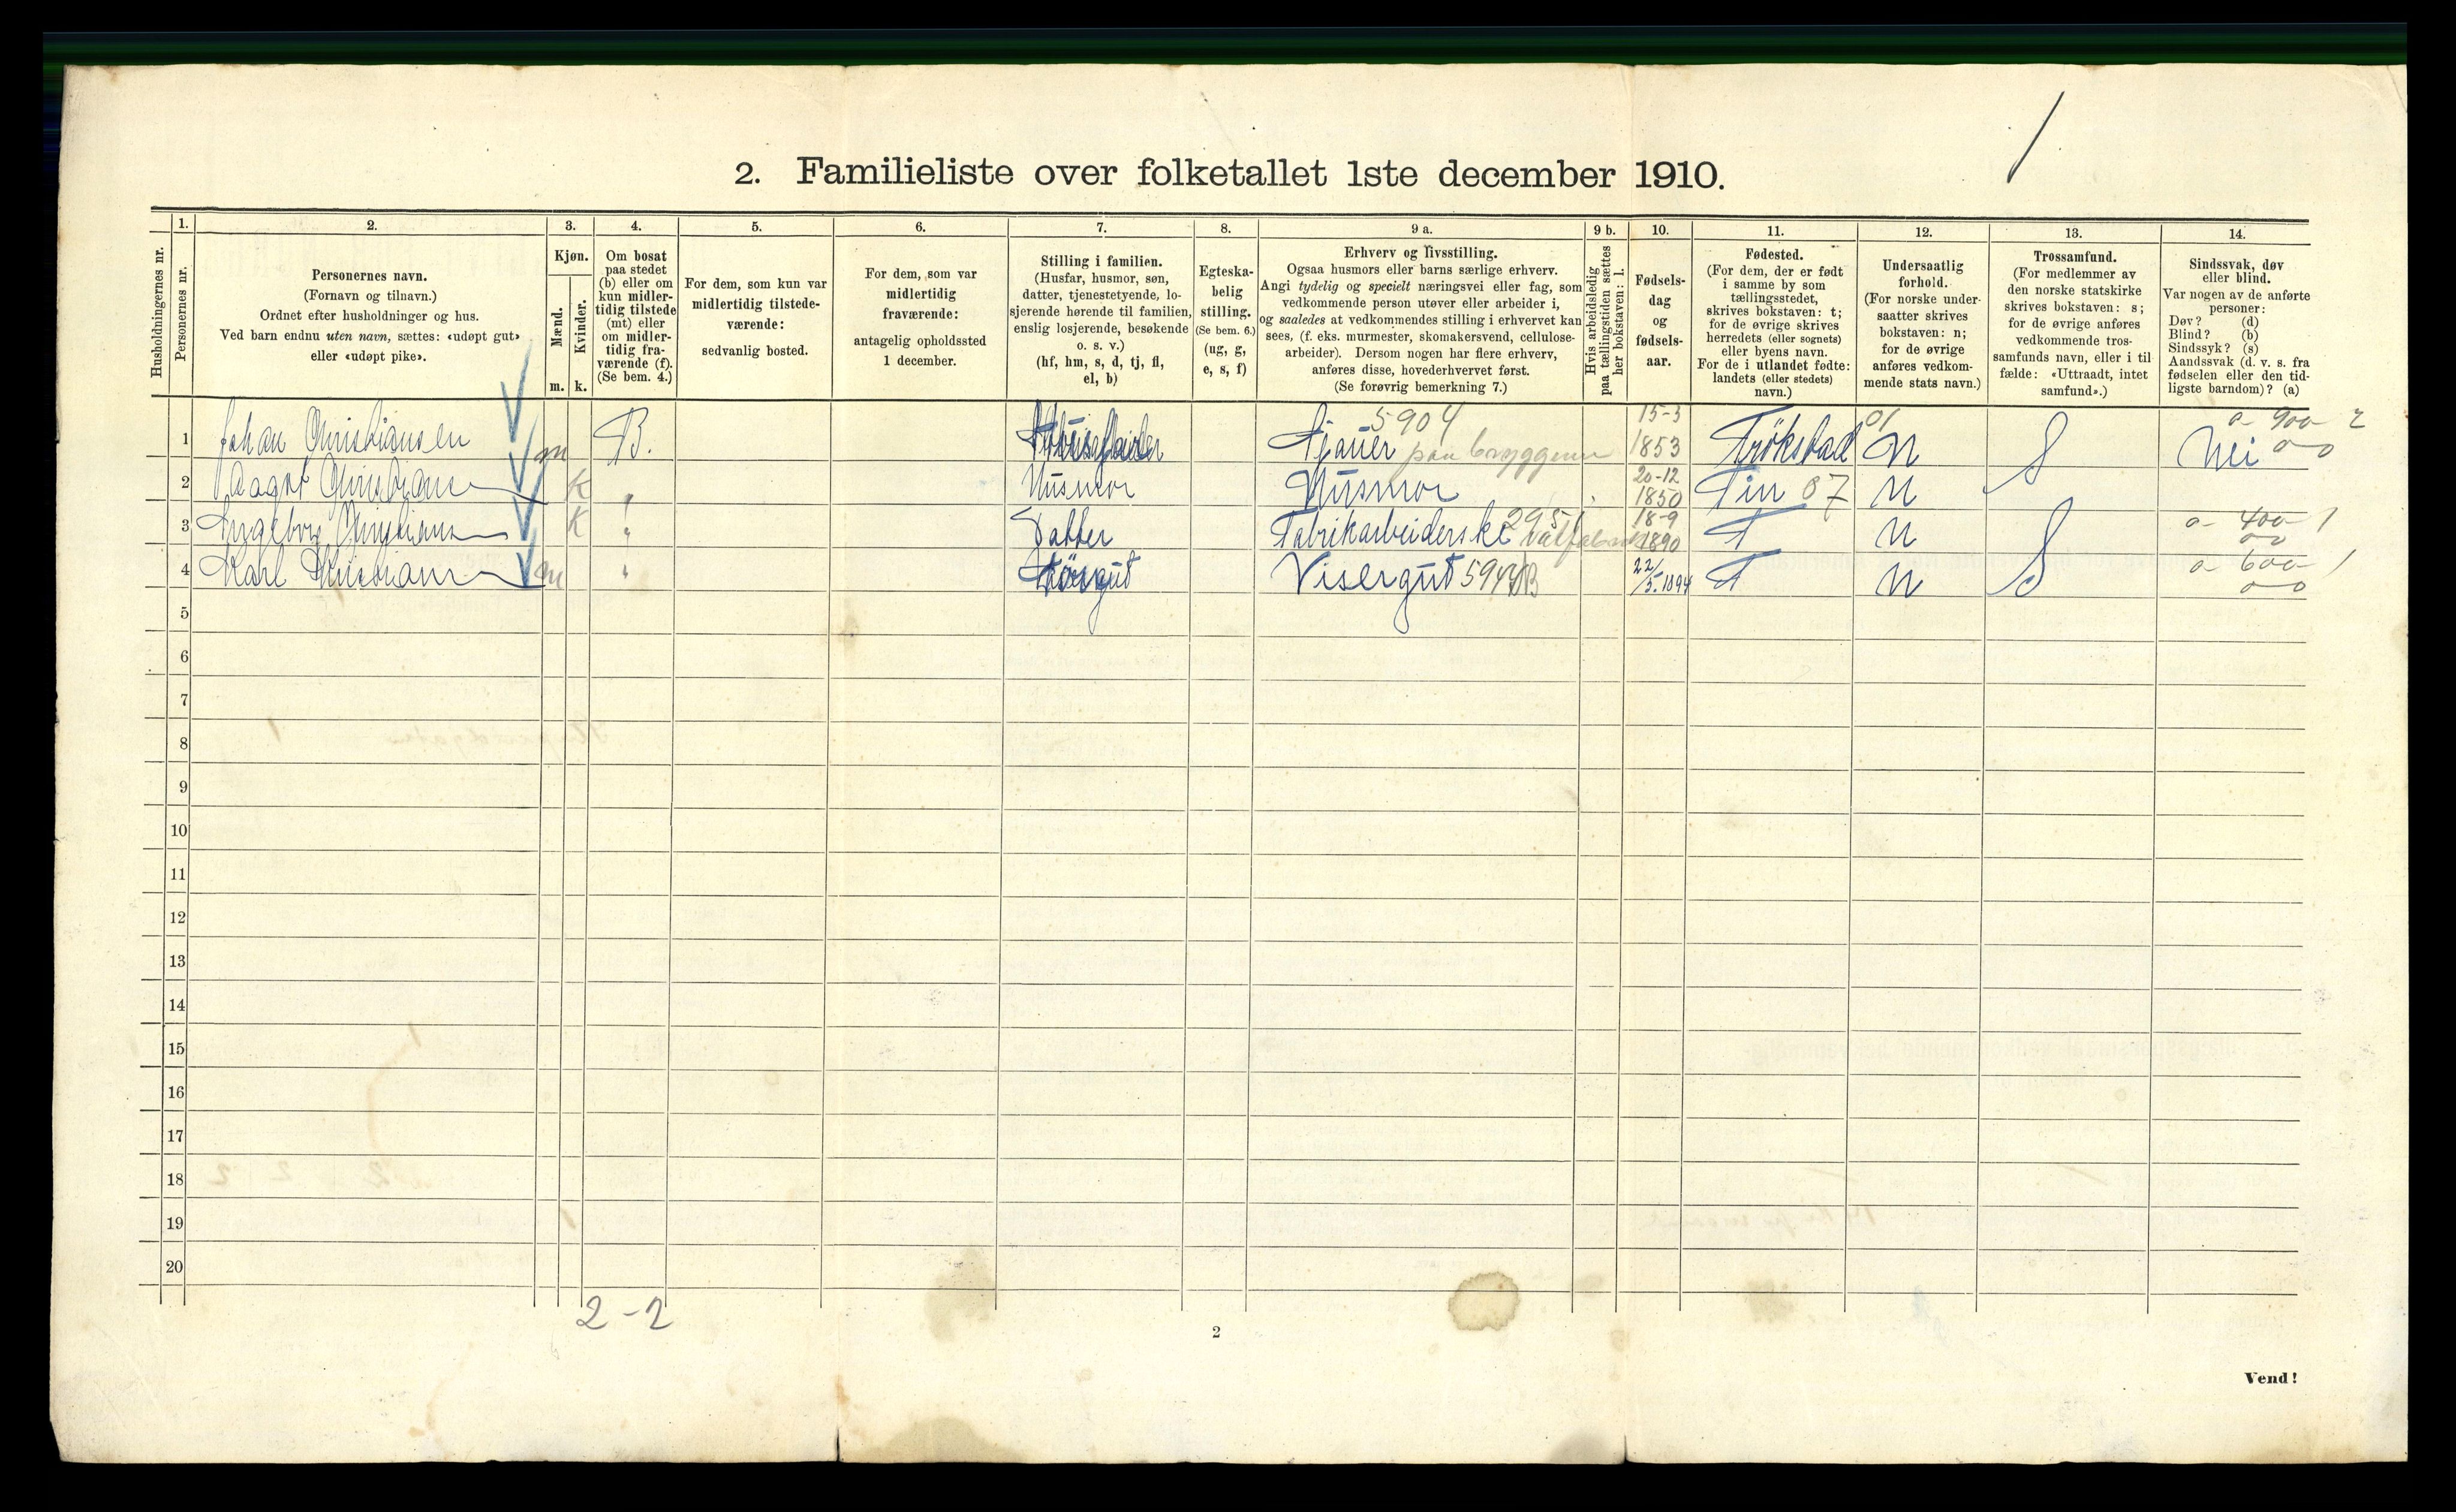 2. Familieliste over folketallet 1ste december 1910.
Husholdningernes nr.
1.
Personernes nr.
2.
Personernes navn.
(Fornavn og tilnavn.)
Ordnet efter husholdninger og hus.
Ved barn endnu uten navn, sættes: «udøpt gut»
eller «udøpt pike».
3.
Kjøn.
Mænd.
Kvinder.
m. k.
4.
Om bosat
paa stedet
(b) eller om
kun midler-
tidig tilstede
(mt) eller
om midler-
tidig fra-
værende (f).
(Se bem. 4.)
5.
For dem, som kun var
midlertidig tilstede-
værende:
sedvanlig bosted.
6.
For dem, som var
midlertidig
fraværende:
antagelig opholdssted
1 december.
7.
Stilling i familien.
(Husfar, husmor, søn,
datter, tjenestetyende, lo-
sjerende hørende til familien,
enslig losjerende, besøkende
o. s. v.)
(hf, hm, s, d, tj, fl,
el, b)
8.
Egteska-
belig
stilling.
(Se bem. 6.)
(ug, g,
e, s, f)
9 a.
Erhverv og livsstilling.
Ogsaa husmors eller barns særlige erhverv.
Angi tydelig og specielt næringsvei eller fag, som
vedkommende person utøver eller arbeider i,
og saaledes at vedkommendes stilling i erhvervet kan
sees, (f. eks. murmester, skomakersvend, cellulose-
arbeider). Dersom nogen har flere erhverv,
anføres disse, hovederhvervet først.
(Se forøvrig bemerkning 7.)
9 b.
Hvis arbeidsledig
paa tællingstiden sættes
her bokstaven: l.
10.
Fødsels-
dag
og
fødsels-
aar.
11.
Fødested.
(For dem, der er født
i samme by som
tællingsstedet,
skrives bokstaven: t;
for de øvrige skrives
herredets (eller sognets)
eller byens navn.
For de i utlandet fødte:
landets (eller stedets)
navn.)
12.
Undersaatlig
forhold.
(For norske under-
saatter skrives
bokstaven: n;
for de øvrige
anføres vedkom-
mende stats navn.)
13.
Trossamfund.
(For medlemmer av
den norske statskirke
skrives bokstaven: s;
for de øvrige anføres
vedkommende tros-
samfunds navn, eller i til-
fælde: «Uttraadt, intet
samfund».)
14.
Sindssvak, døv
eller blind.
Var nogen av de anførte
personer:
Døv? (d)
Blind? (b)
Sindssyk? (s)
Aandssvak (d. v. s. fra
fødselen eller den tid-
ligste barndom)? (a)
1 Johan Christiansen m B. 5904 paa bryggerne 15-3 1853 Trökstad 01 N S Nei a 900 2
2 Christians K " Husmor Husmor 20-12 1850 Tin 87 N
3 Ingeborg Christians K " Datter Fabrikarbeiderske 295 18-9 1890 T N S a 400 1
4 Karl Christians m " Visergut 594 22/5.1894 T N S a 600 1
5
6
7
8
9
10
11
12
13
14
15
16
17
18
19
20
2-2
2
Vend!